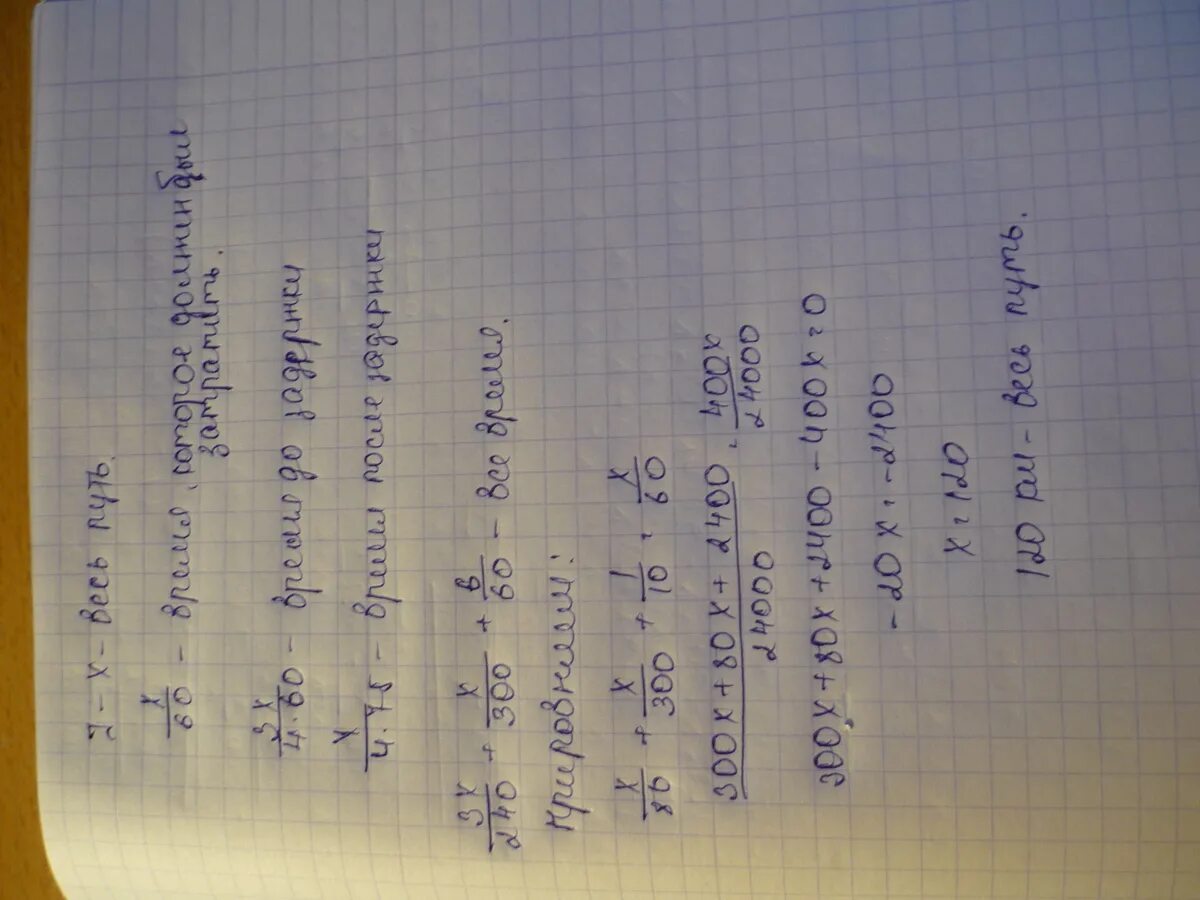 I - x - весь путь.
x/60 - время, которое должин был
затратить.
3x/4·60 - время до задержки
x/4·75 - время после задержки
3x/240 + x/300 + 6/60 - все время.
Прировняем:
x/80 + x/300 + 1/10 = x/60
300x+80x+2400/24000 = 400x/24000
300x+80x+2400-400x=0
-20x=-2400
x=120
120 км - весь путь.